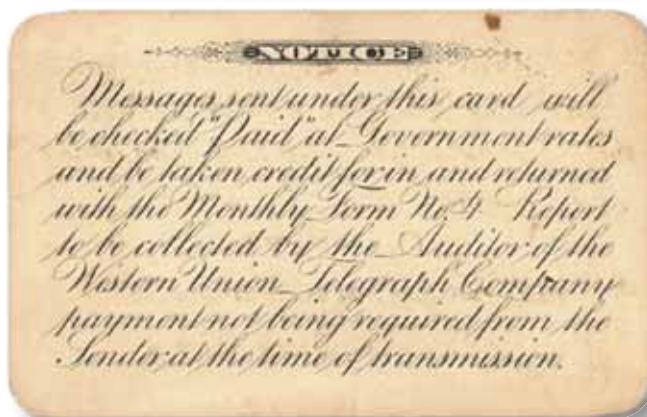 NOTICE
Messages sent under this card will
be checked "Paid" at Government rates
and be taken credit for in and returned
with the Monthly Form No. 4 Report
to be collected by the Auditor of the
Western Union Telegraph Company
payment not being required from the
Sender at the time of transmission.